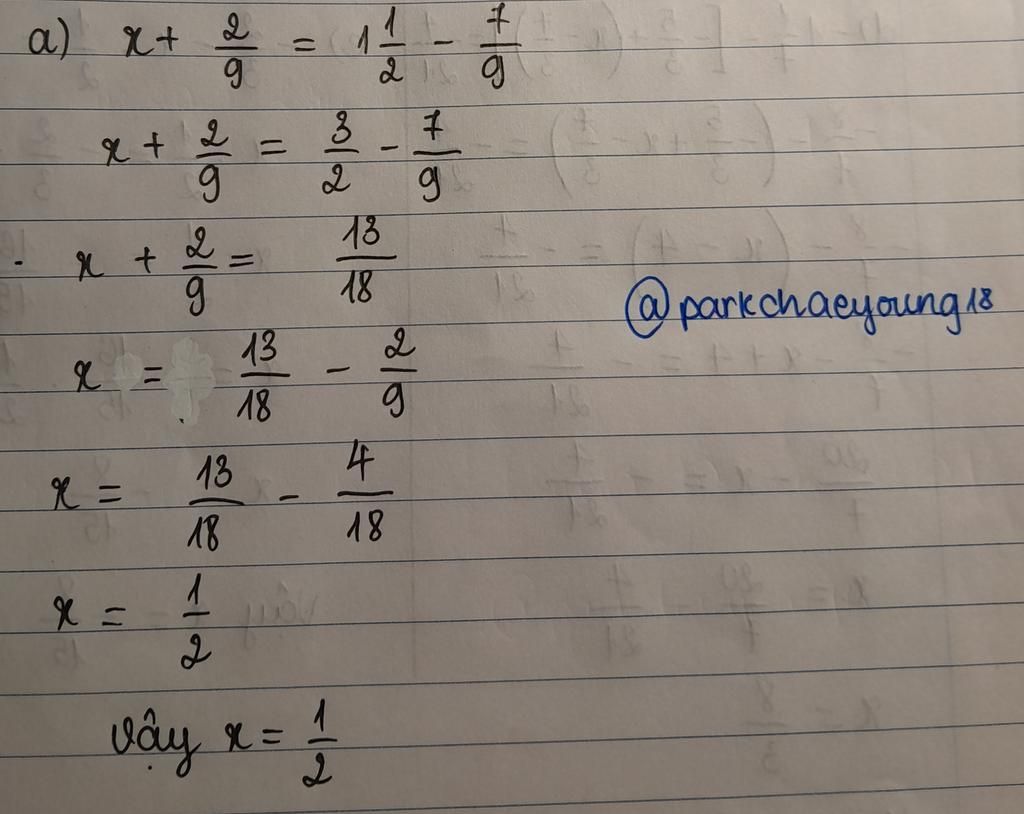 a) x + 2/9 = 1 1/2 - 7/9
x + 2/9 = 3/2 - 7/9
x + 2/9 = 13/18
@parkchaeyoung18
x = 13/18 - 2/9
x = 13/18 - 4/18
x = 1/2
Vậy x = 1/2